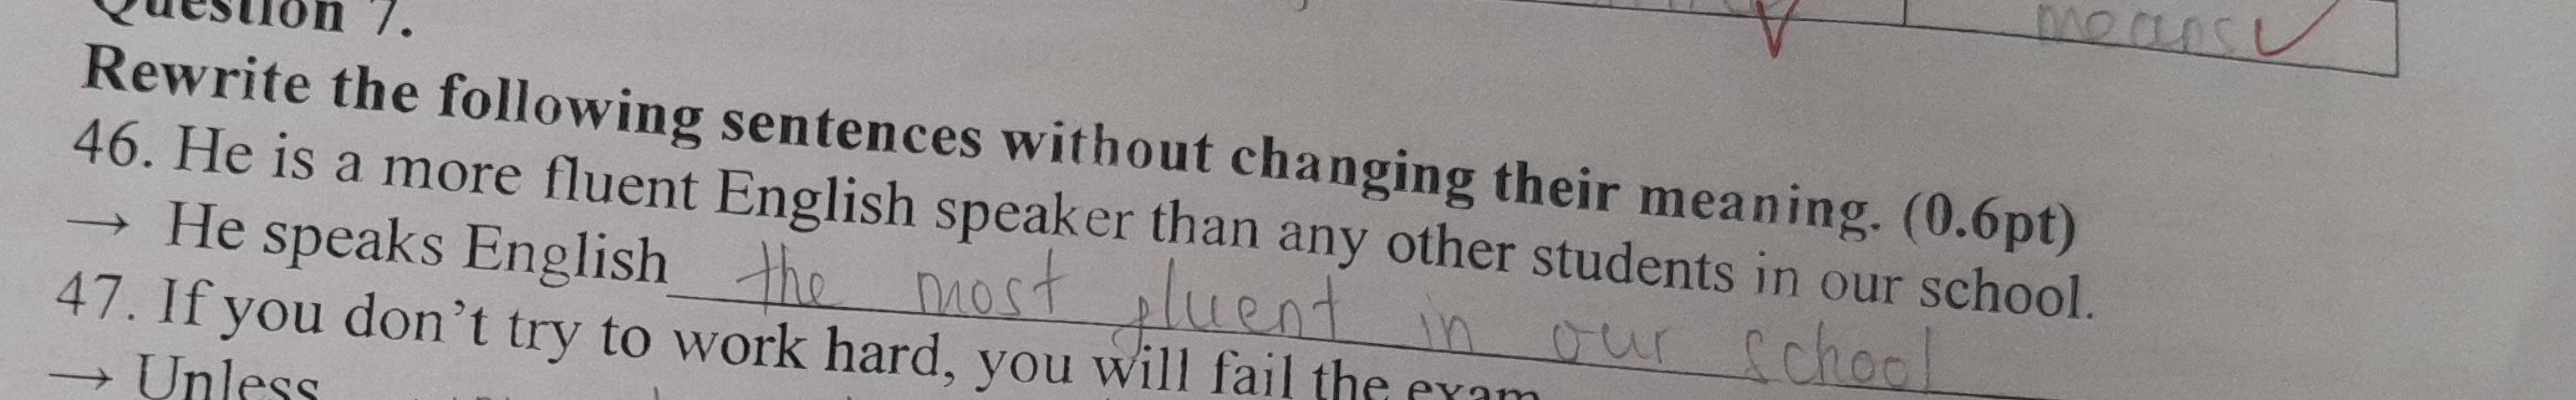 Question 7.
means
Rewrite the following sentences without changing their meaning. (0.6pt)
46. He is a more fluent English speaker than any other students in our school.
→ He speaks English the most fluent in our school
47. If you don't try to work hard, you will fail the exam
→ Unless